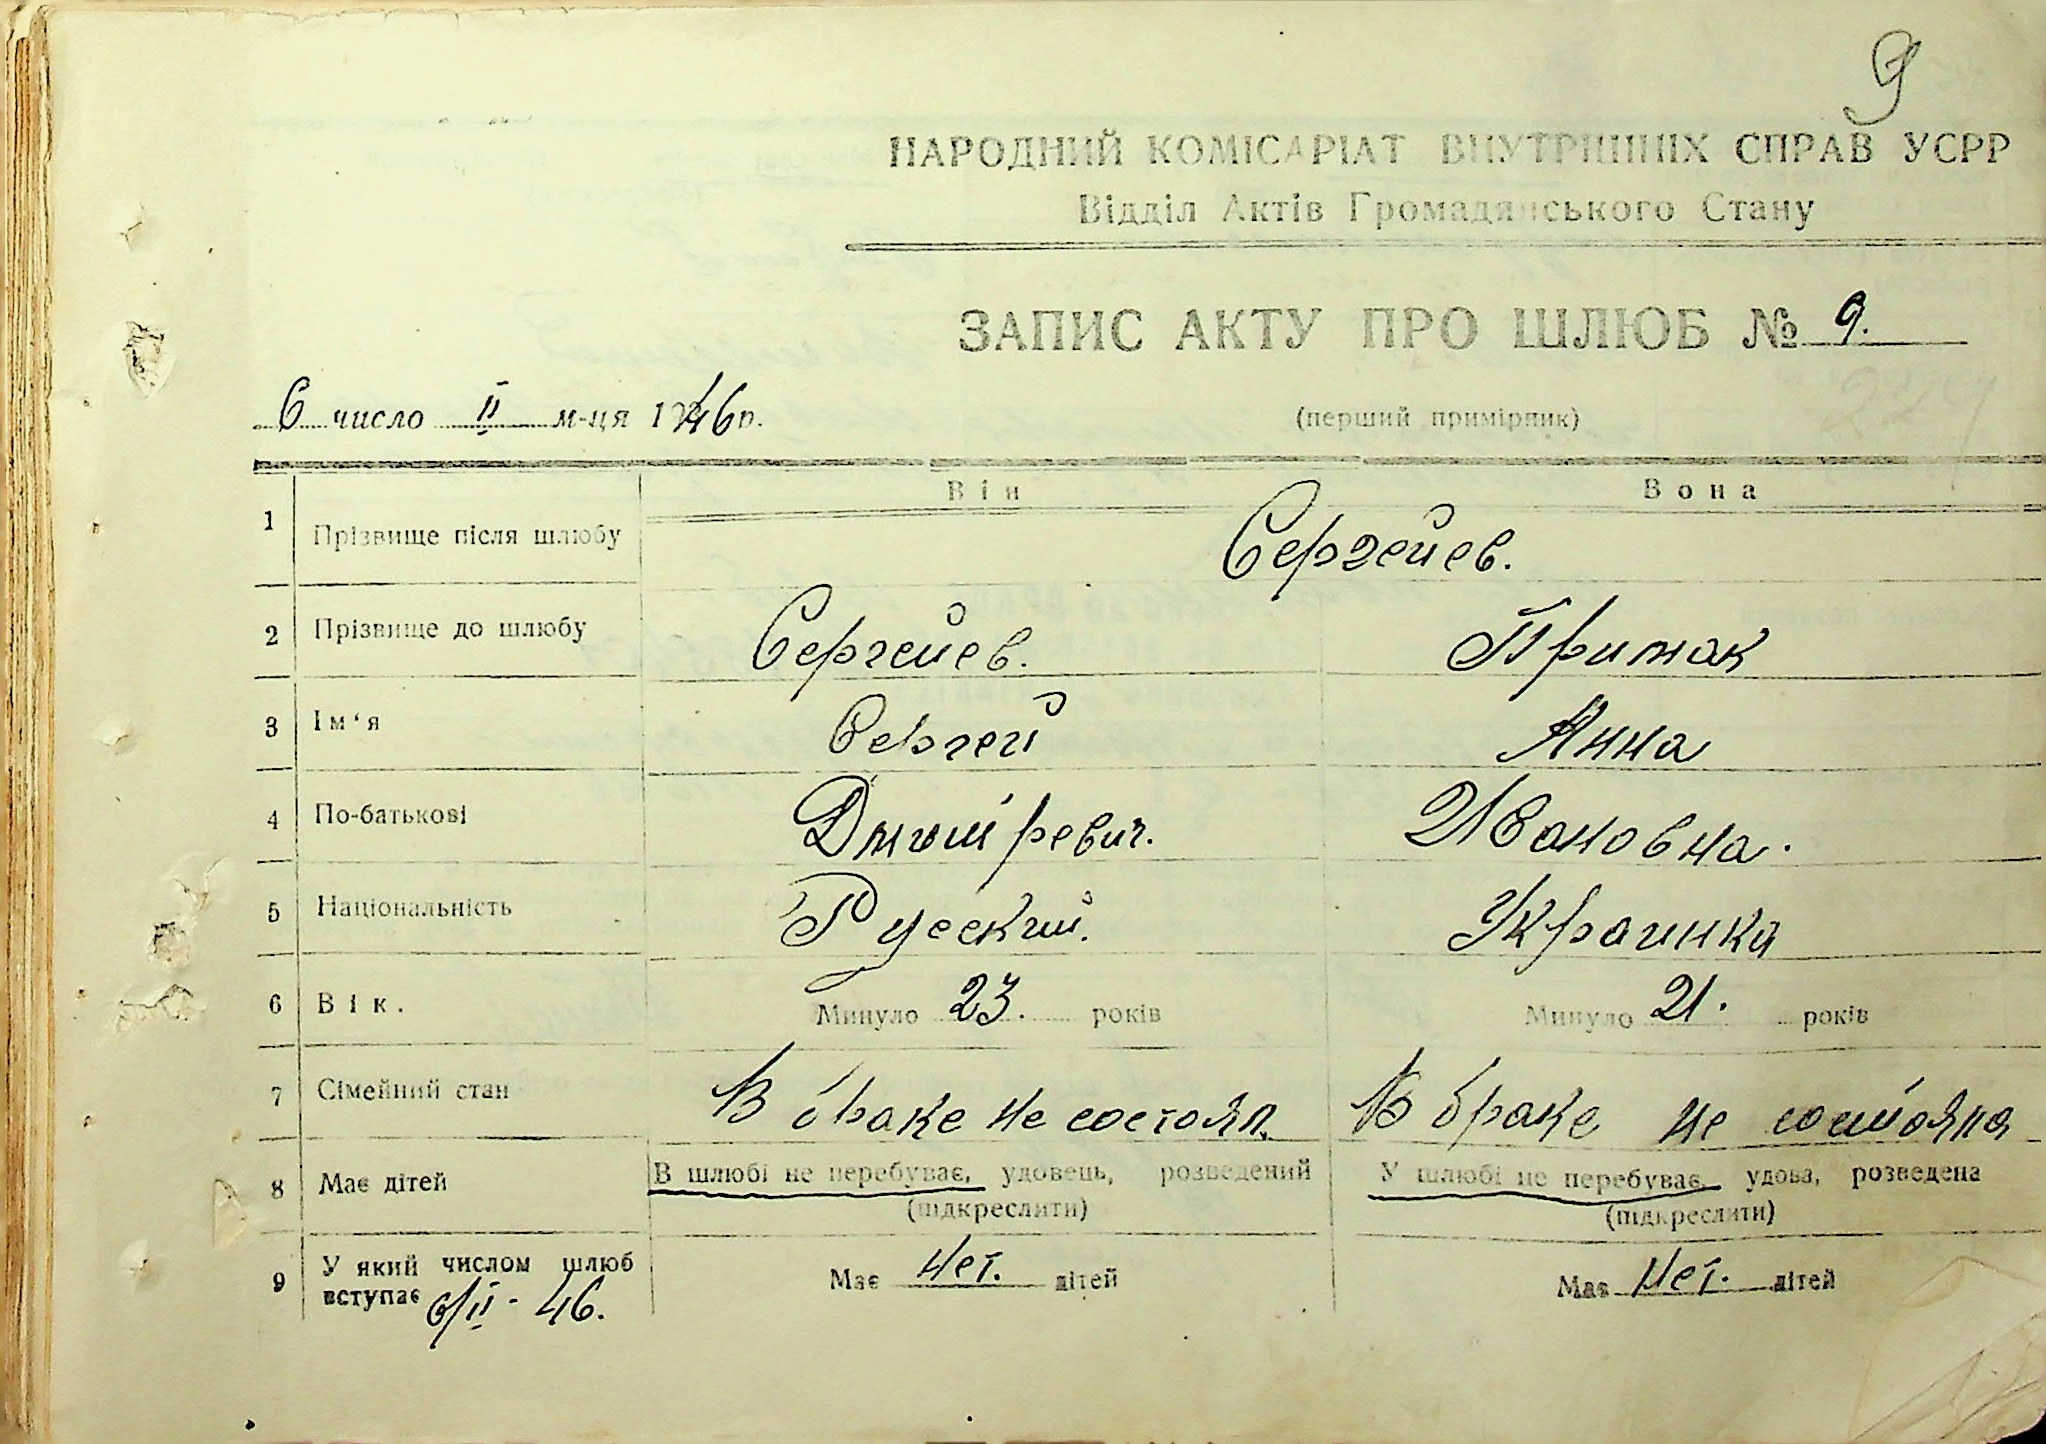 9
НАРОДНИЙ КОМІСАРІАТ ВНУТРІШНІХ СПРАВ УСРР
Відділ Актів Громадянського Стану
ЗАПИС АКТУ ПРО ШЛЮБ № 9.
6 число II м-ця 1946 р.
(перший примірник)
Він Вона
1 Прізвище після шлюбу Сергейев.
2 Прізвище до шлюбу Сергейев. Примак
3 Ім‘я Сергей Анна
4 По-батькові Дмитревич. Ивановна.
5 Національність Русский. Украинка
6 Вік. Минуло 23. років Минуло 21. років
7 Сімейний стан В браке не состоял. В браке не состояла
8 Має дітей В шлюбі не перебуває, удовець, розведений У шлюбі не перебуває, удова, розведена
(підкреслити) (підкреслити)
9 У який числом шлюб
вступає 6/II - 46. Має нет. дітей Має нет. дітей